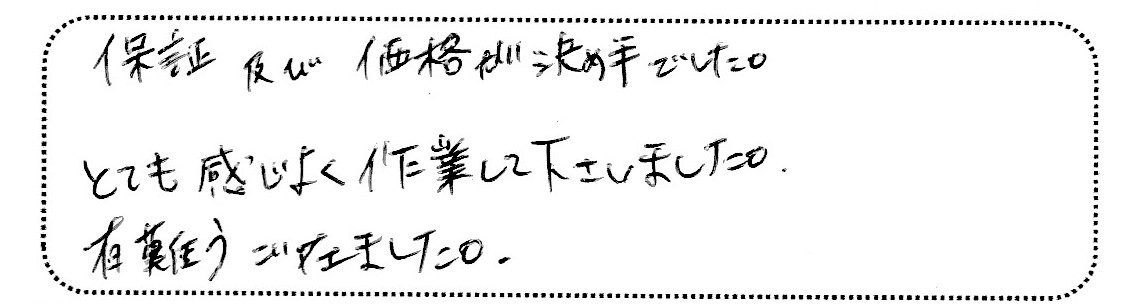 保証 及び 価格が決め手でした。
とても感じよく作業して下さいました。
有難うございました。